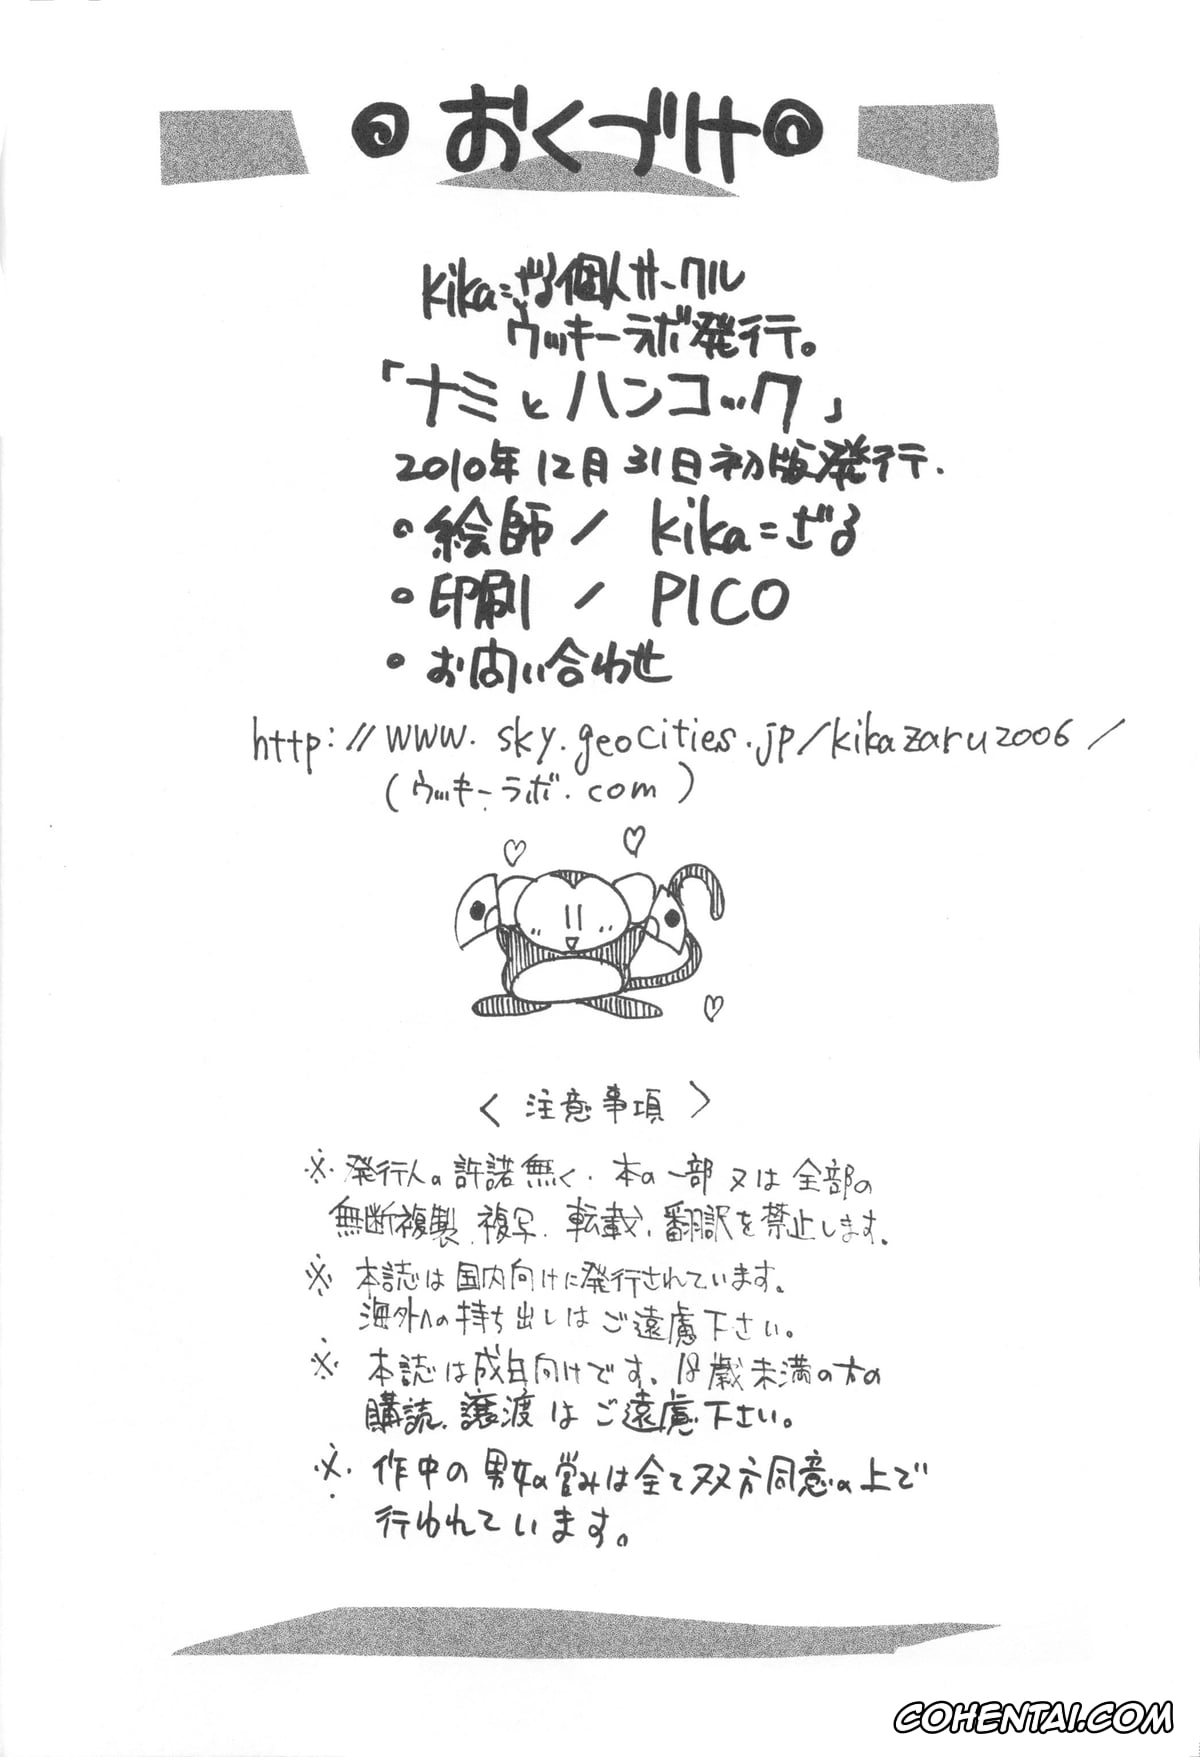 おくづけ
kika=ざる個人サークル
ウッキーラボ発行。
「ナミとハンコック」
2010年12月31日初版発行.
・絵師 / kika=ざる
・印刷 / PICO
・お問い合わせ
http://www.sky.geocities.jp/kikazaru2006/
(ウッキーラボ.com)
〈注意事項〉
※発行人の許諾無く、本の一部又は全部の
無断複製、複写、転載、翻訳を禁止します。
※本誌は国内向けに発行されています。
海外への持ち出しはご遠慮下さい。
※本誌は成年向けです。18歳未満の方の
購読、譲渡はご遠慮下さい。
※作中の男女の営みは全て双方同意の上で
行われています。
COHENTAI.COM